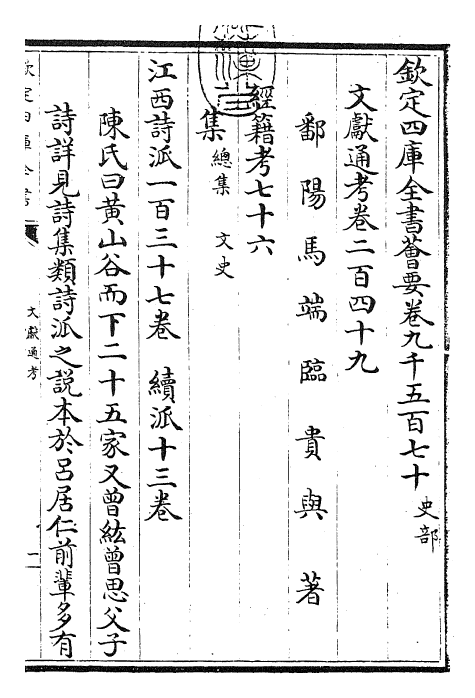 欽定四庫全書薈要卷九千五百七十 史部
文獻通考卷二百四十九
鄱陽馬端臨貴與著
經籍考七十六
集 總集 文史
江西詩派一百三十七卷 續派十三卷
陳氏曰黃山谷而下二十五家又曾紘曾思父子
詩詳見詩集類詩派之説本於呂居仁前輩多有
欽定四庫全書
文獻通考
一